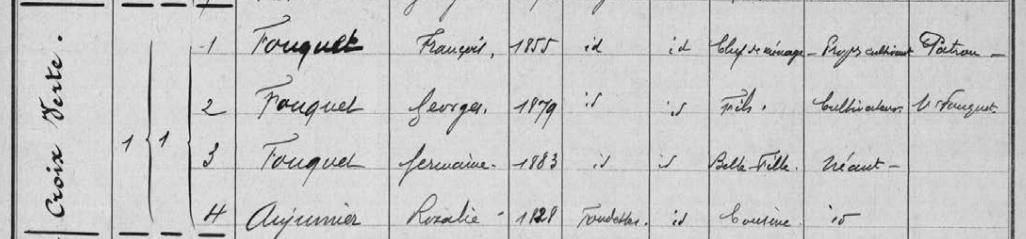 Croix Verte.
1 1 1 Fouquet François. 1855 id id Chef de ménage Prop. cultivant Patron
2 Fouquet Georges. 1879 id id Fils. Cultivateur Mr Fouquet
3 Fouquet Germaine. 1883 id id Belle-Fille. Néant
4 1828 id Cousine id